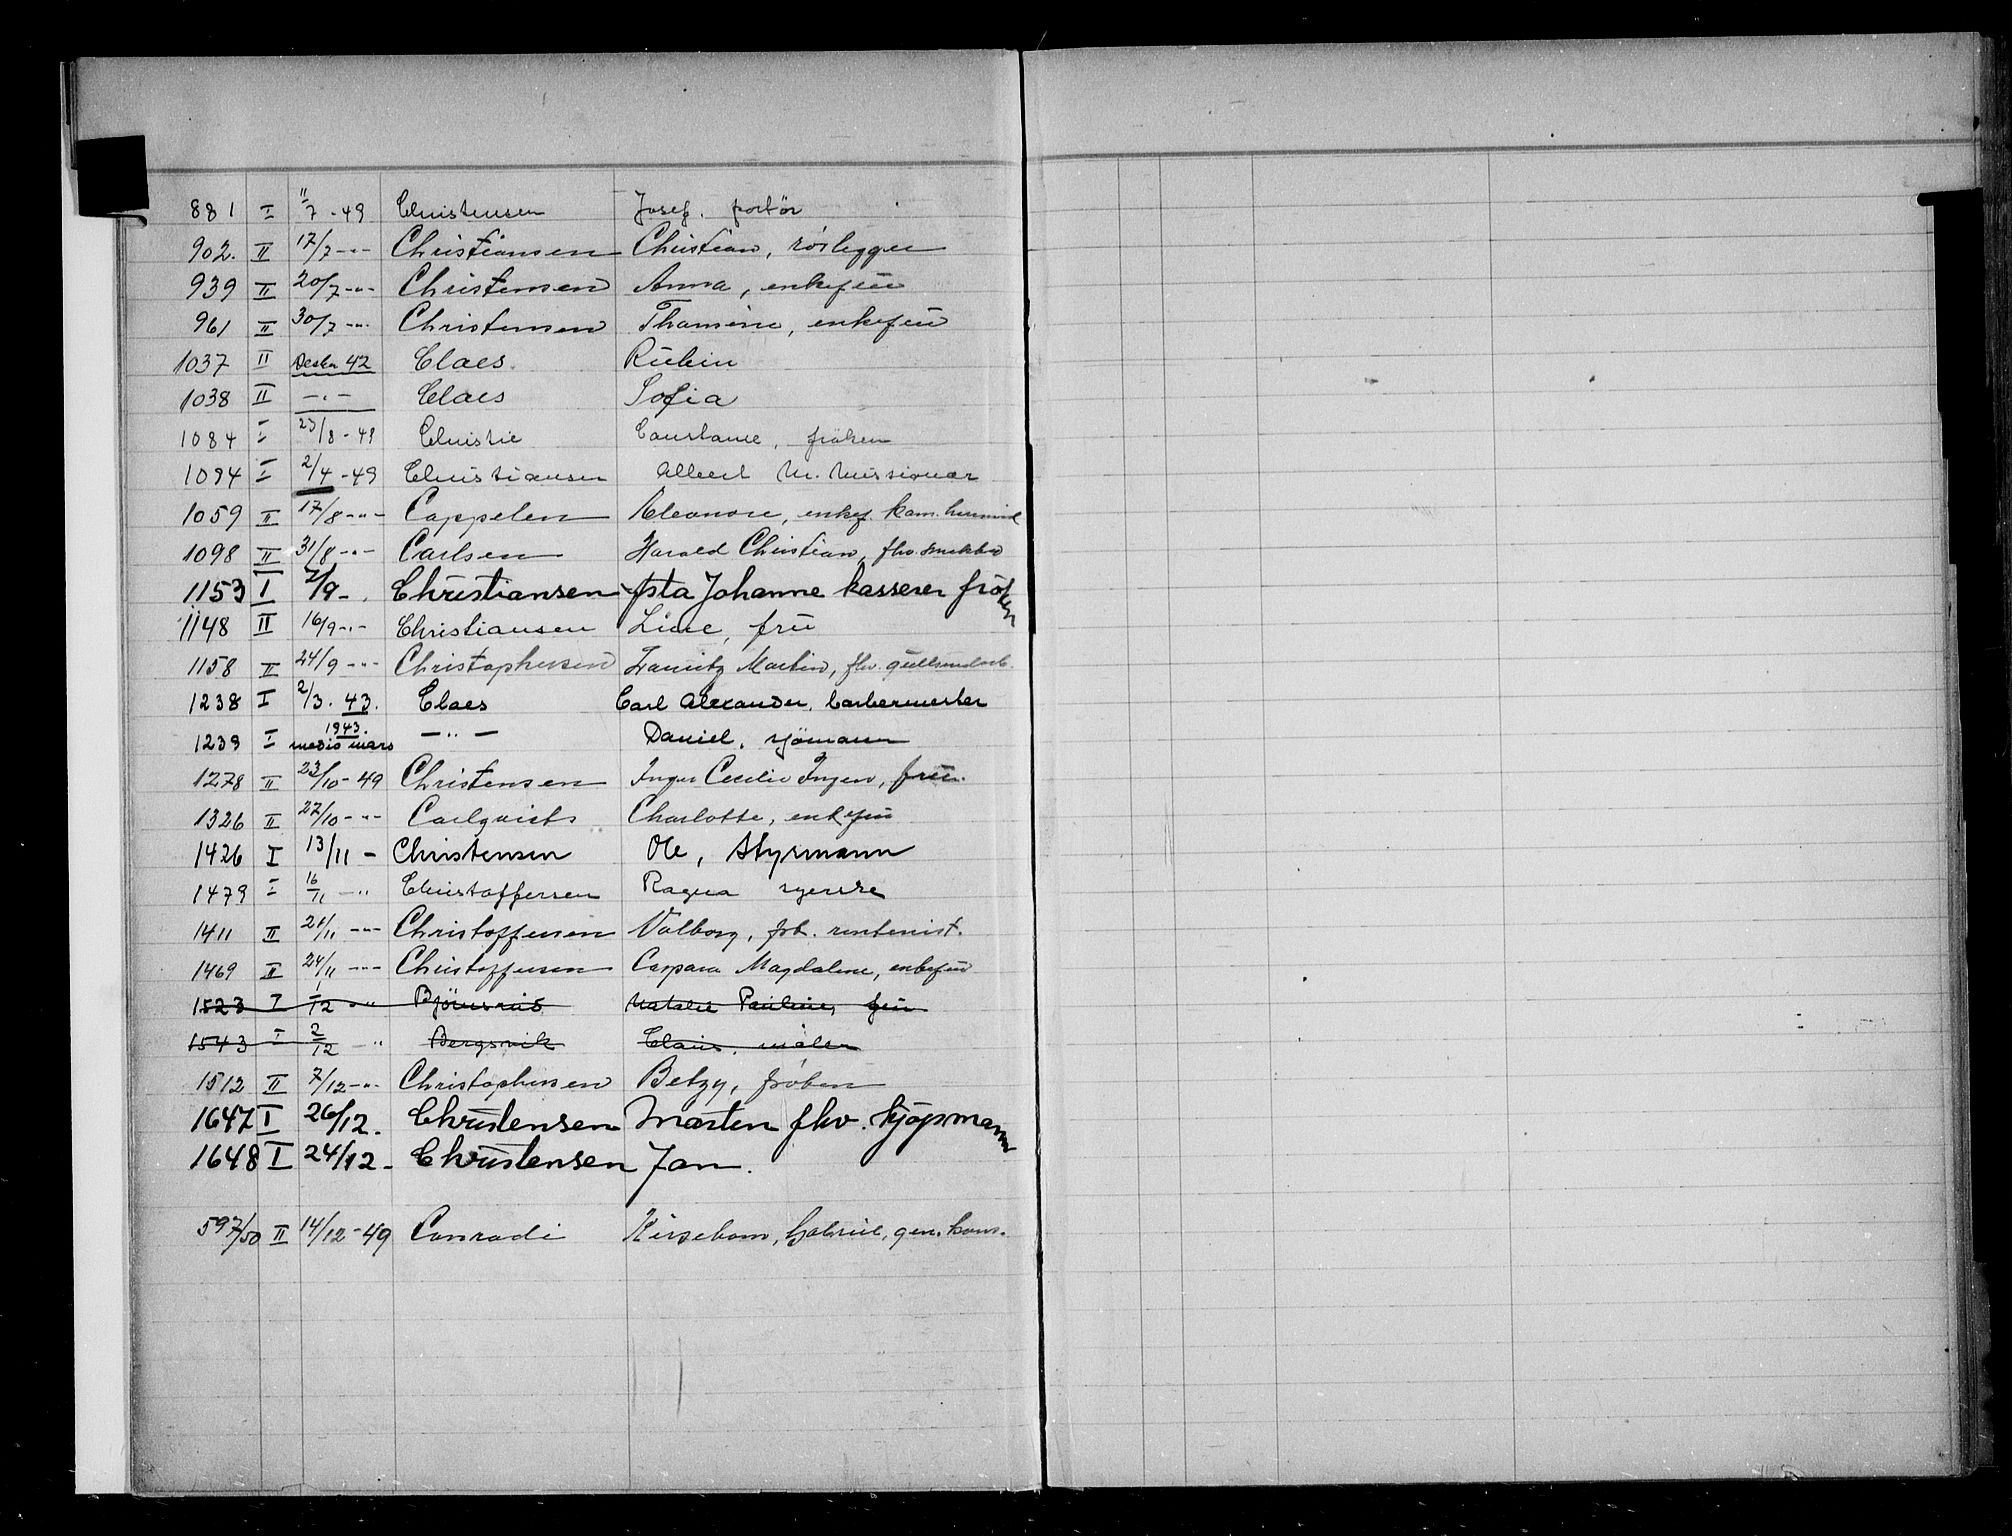 881 I 11/7 -49 Christensen Josef. portör
902. II 17/7 -"- Christiansen Christian, rörlegger
939 II 20/7 -"- Christensen Anna, enkefru
961 II 30/7 -"- Christensen Thomine, enkefru
1037 II Desbr 42 Claes Rubin
1038 II -"- Claes Sofia
1084 I 23/8 -49 Christie Constance, fröken
1094 I 2/4 -49 Christiansen Albert M. Missionær
1059 II 17/8 -"- Cappelen Eleonore, enkef.
1098 II 31/8 -"- Carlsen Harald Christian, fhv.
1153 I 7/9 - Christiansen Asta Johanne kasserer fröken
1148 II 16/9 -"- Christiansen Line, fru
1158 II 24/9 -"- Christophersen Lauritz Martin, fhv. gullsmedarb.
1238 I 2/3. 43. Claes Carl Alexander, barbermester
1239 I 1943. medio mars -"- Daniel, sjömann
1278 II 23/10 -49 Christensen Inger Cecilie Ingen, fru.
1326 II 27/10 -"- Carlqvist Charlotte, enkefru
1426 I 13/11 - Christensen Ole, Styrmann
1479 I 16/11 -" Christoffersen Ragna syerske
1411 II 21/11 -"- Christoffersen Valborg, frk. rentenist.
1469 II 24/11 -"- Christoffersen Caspara Magdalene, enkefru
1523 I 1/12 -" Natalie Pauline, fru
1543 I 2/12 -" Bergsvik Claus, maler
1512 II 7/12 -"- Christophersen Betzy, fröken
1647 I 26/12. Christensen Marten fhv. kjøpmann
1648 I 24/12 - Christensen Jan.
597/50 II 14/12 -49 Conradi Kirsebom, Gabriel, gen. kons.